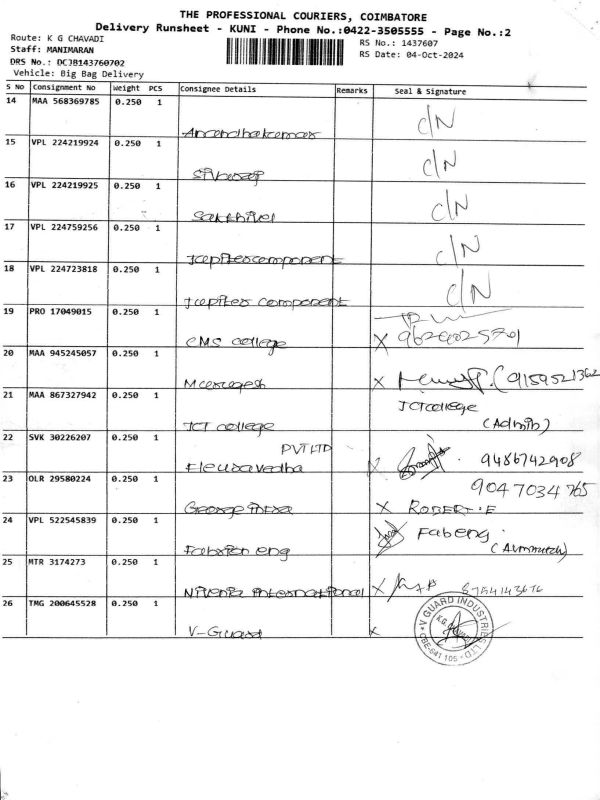 THE PROFESSIONAL COURIERS, COIMBATORE
Delivery Runsheet - KUNI - Phone No.:0422-3505555 - Page No.:2
Route: K G CHAVADI
RS No.: 1437607
Staff: MANIMARAN
RS Date: 04-Oct-2024
DRS No.: DCJB143760702
Vehicle: Big Bag Delivery
S No Consignment No Weight PCS Consignee Details Remarks Seal & Signature
14 MAA 568369785 0.250 1
Anandhakumar C/N
15 VPL 224219924 0.250 1
Sivaraj C/N
16 VPL 224219925 0.250 1
Sakthivel C/N
17 VPL 224759256 0.250 1
Jupiter component C/N
18 VPL 224723818 0.250 1
Jupiter component C/N
19 PRO 17049015 0.250 1
CMS college X
20 MAA 945245057 0.250 1
Murugesh X (9159521362
21 MAA 867327942 0.250 1
JCT college JCT college
(Admin)
22 SVK 30226207 0.250 1
PVT LTD
9486742908
23 OLR 29580224 0.250 1
9047034765
X ROBERT.E
24 VPL 522545839 0.250 1
eng Fabeng
25 MTR 3174273 0.250 1
International X
26 TMG 200645528 0.250 1
V-Guard X
V GUARD INDUSTRIES LTD
K.G. CHAVADI
CBE-641 105